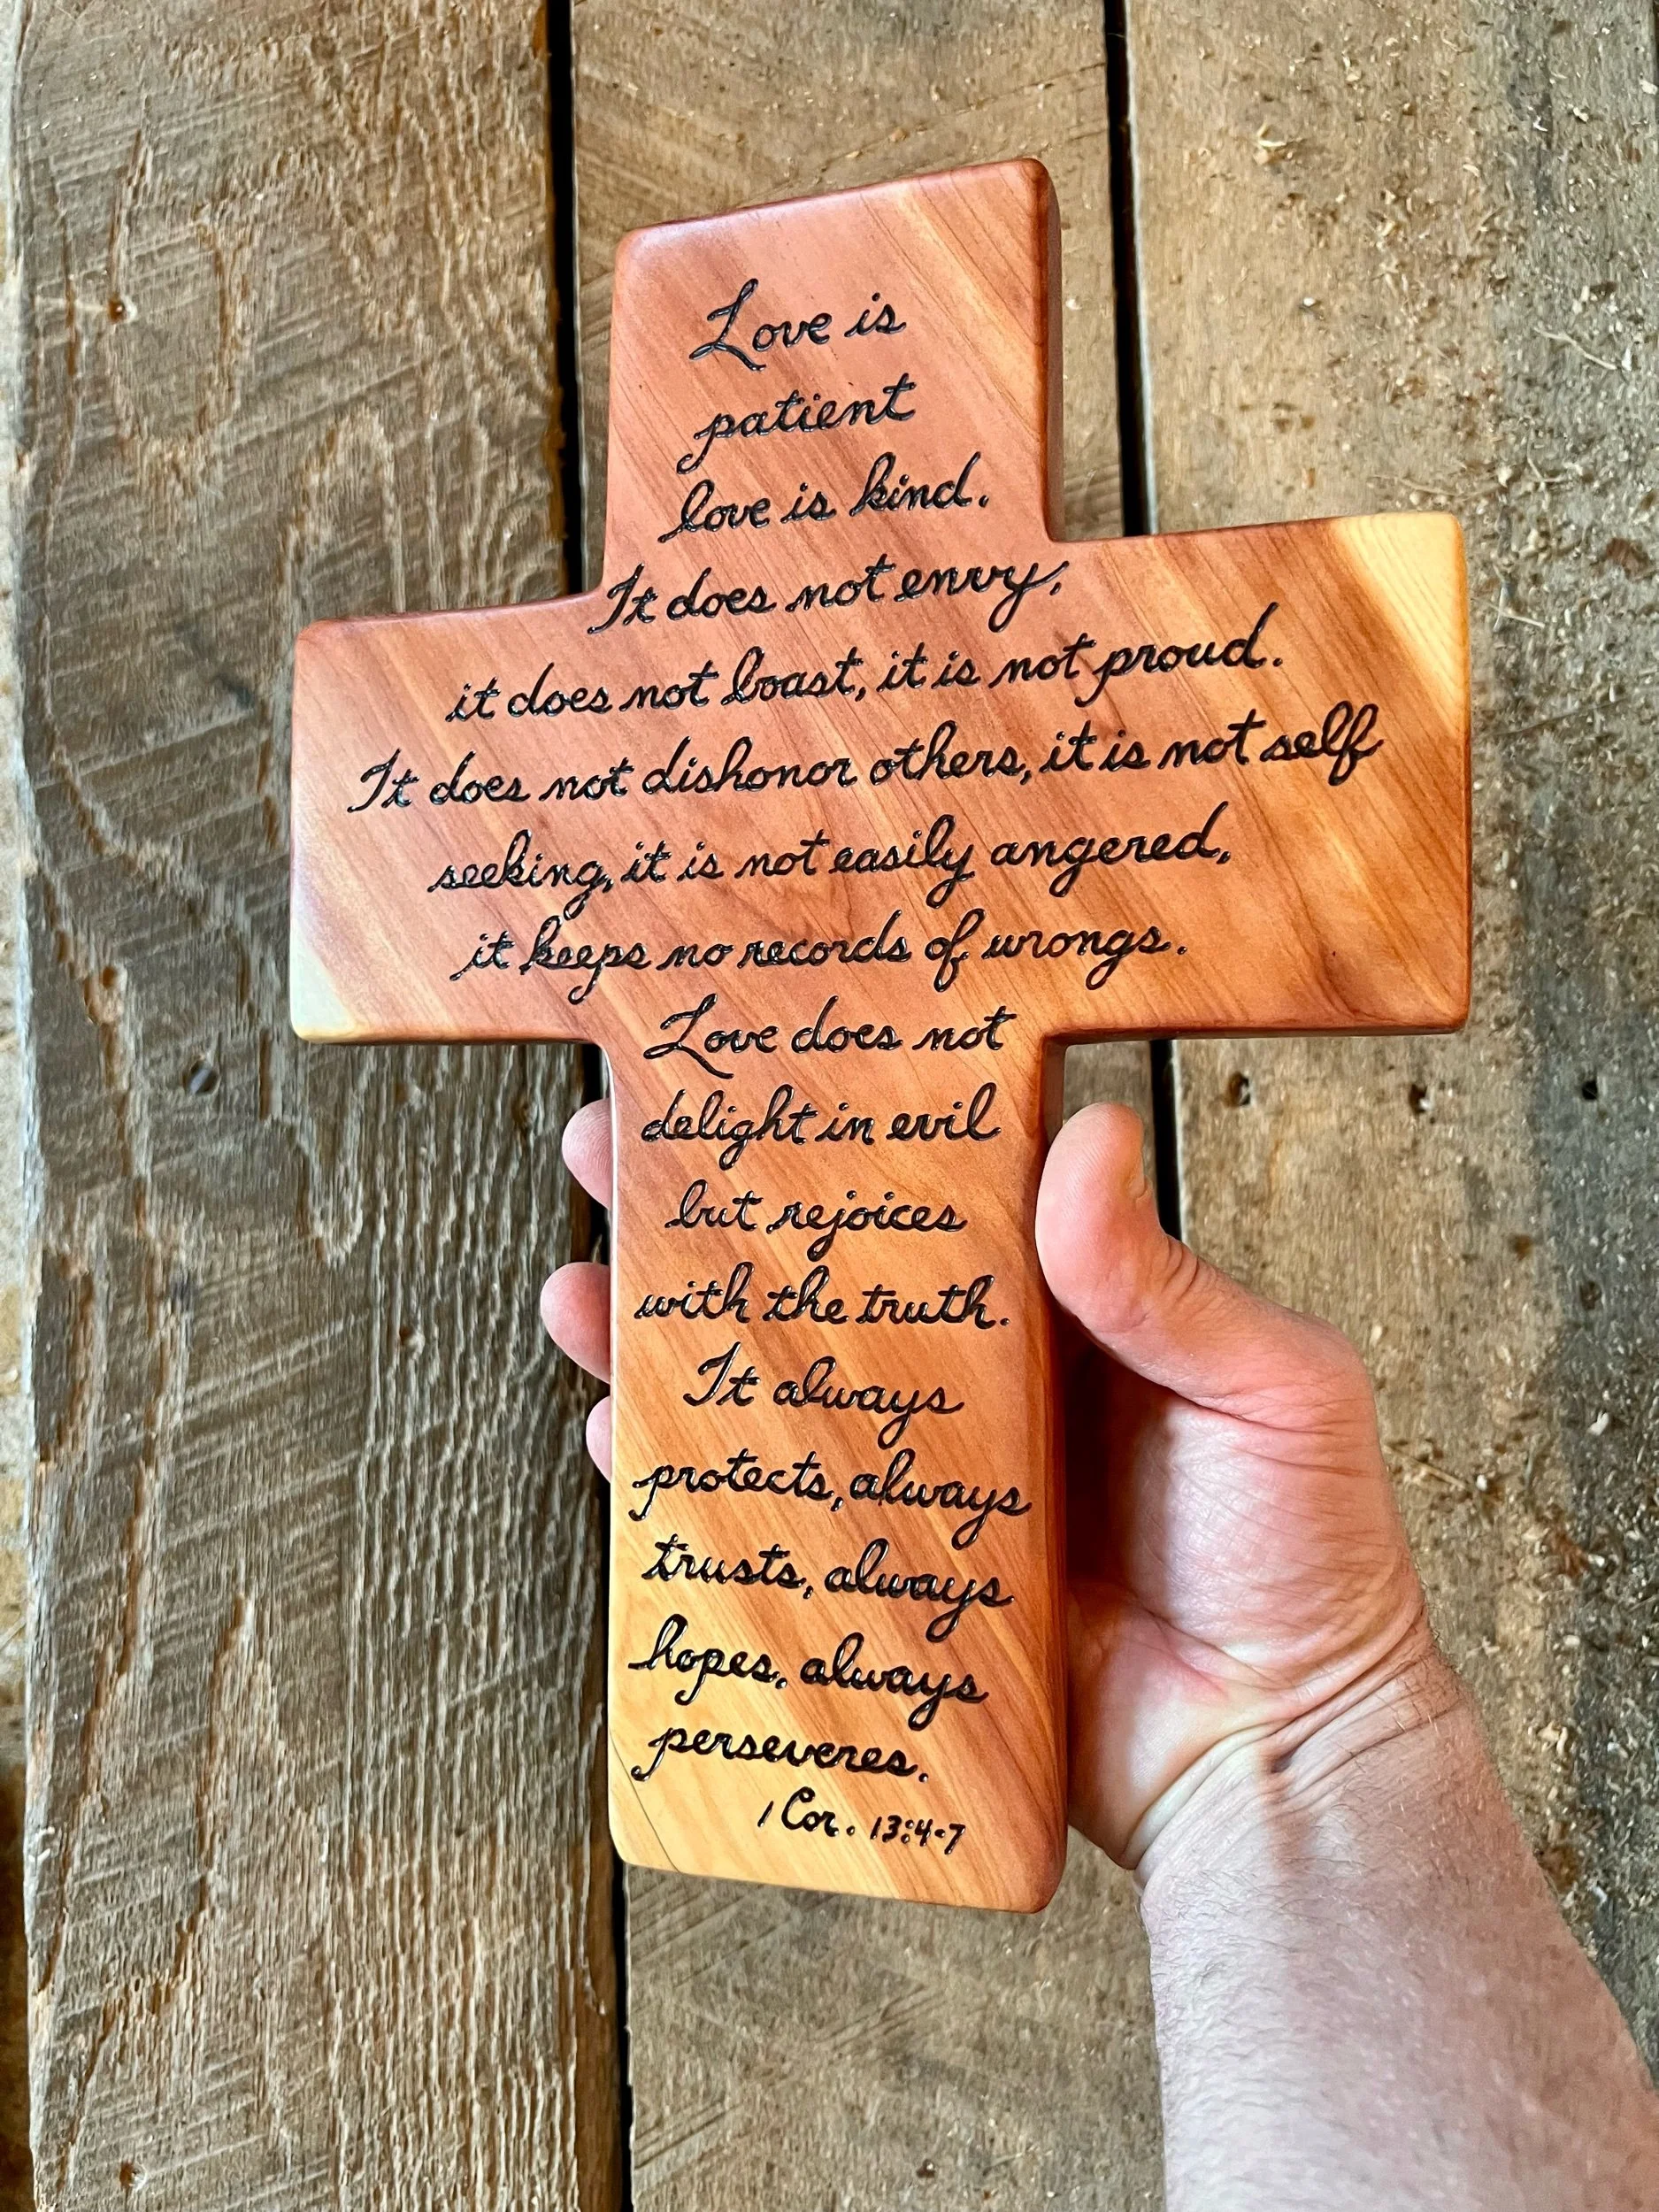 Love is
patient
love is kind.
It does not envy,
it does not boast, it is not proud.
It does not dishonor others, it is not self
seeking, it is not easily angered,
it keeps no records of wrongs.
Love does not
delight in evil
but rejoices
with the truth.
It always
protects, always
trusts, always
hopes, always
perseveres.
1 Cor. 13:4-7